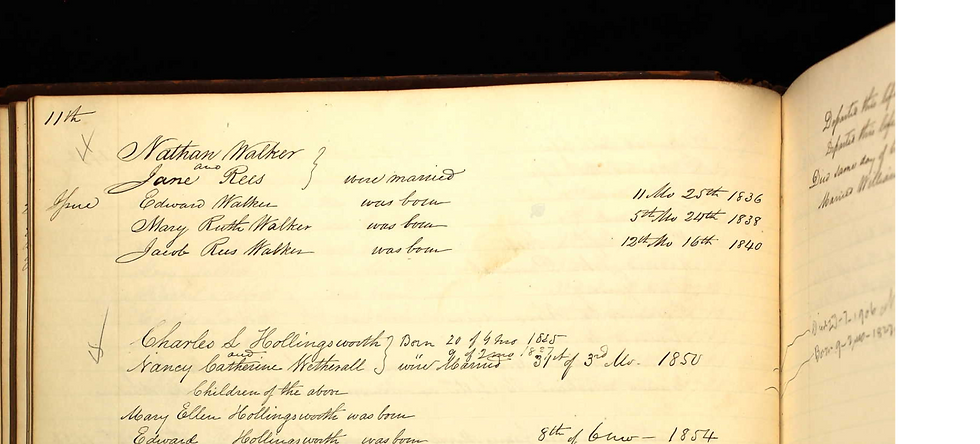 11th
Nathan Walker
and
Jane Rees } were married
Issue Edward Walker was born 11 Mo 25th 1836
Mary Ruth Walker was born 5th Mo 24th 1838
Jacob Rees Walker was born 12th Mo 16th 1840
Charles L Hollingsworth } Born 20 of 9 mo 1825
and 9 of 2 mo 1827
Nancy Catherine Wetherall } were Married 31st of 3rd Mo. 1850
Children of the above
Mary Ellen Hollingsworth was born
Edward Hollingsworth was born 8th of 6 mo - 1854
Departed this life
Departed this life
same day of
Married William